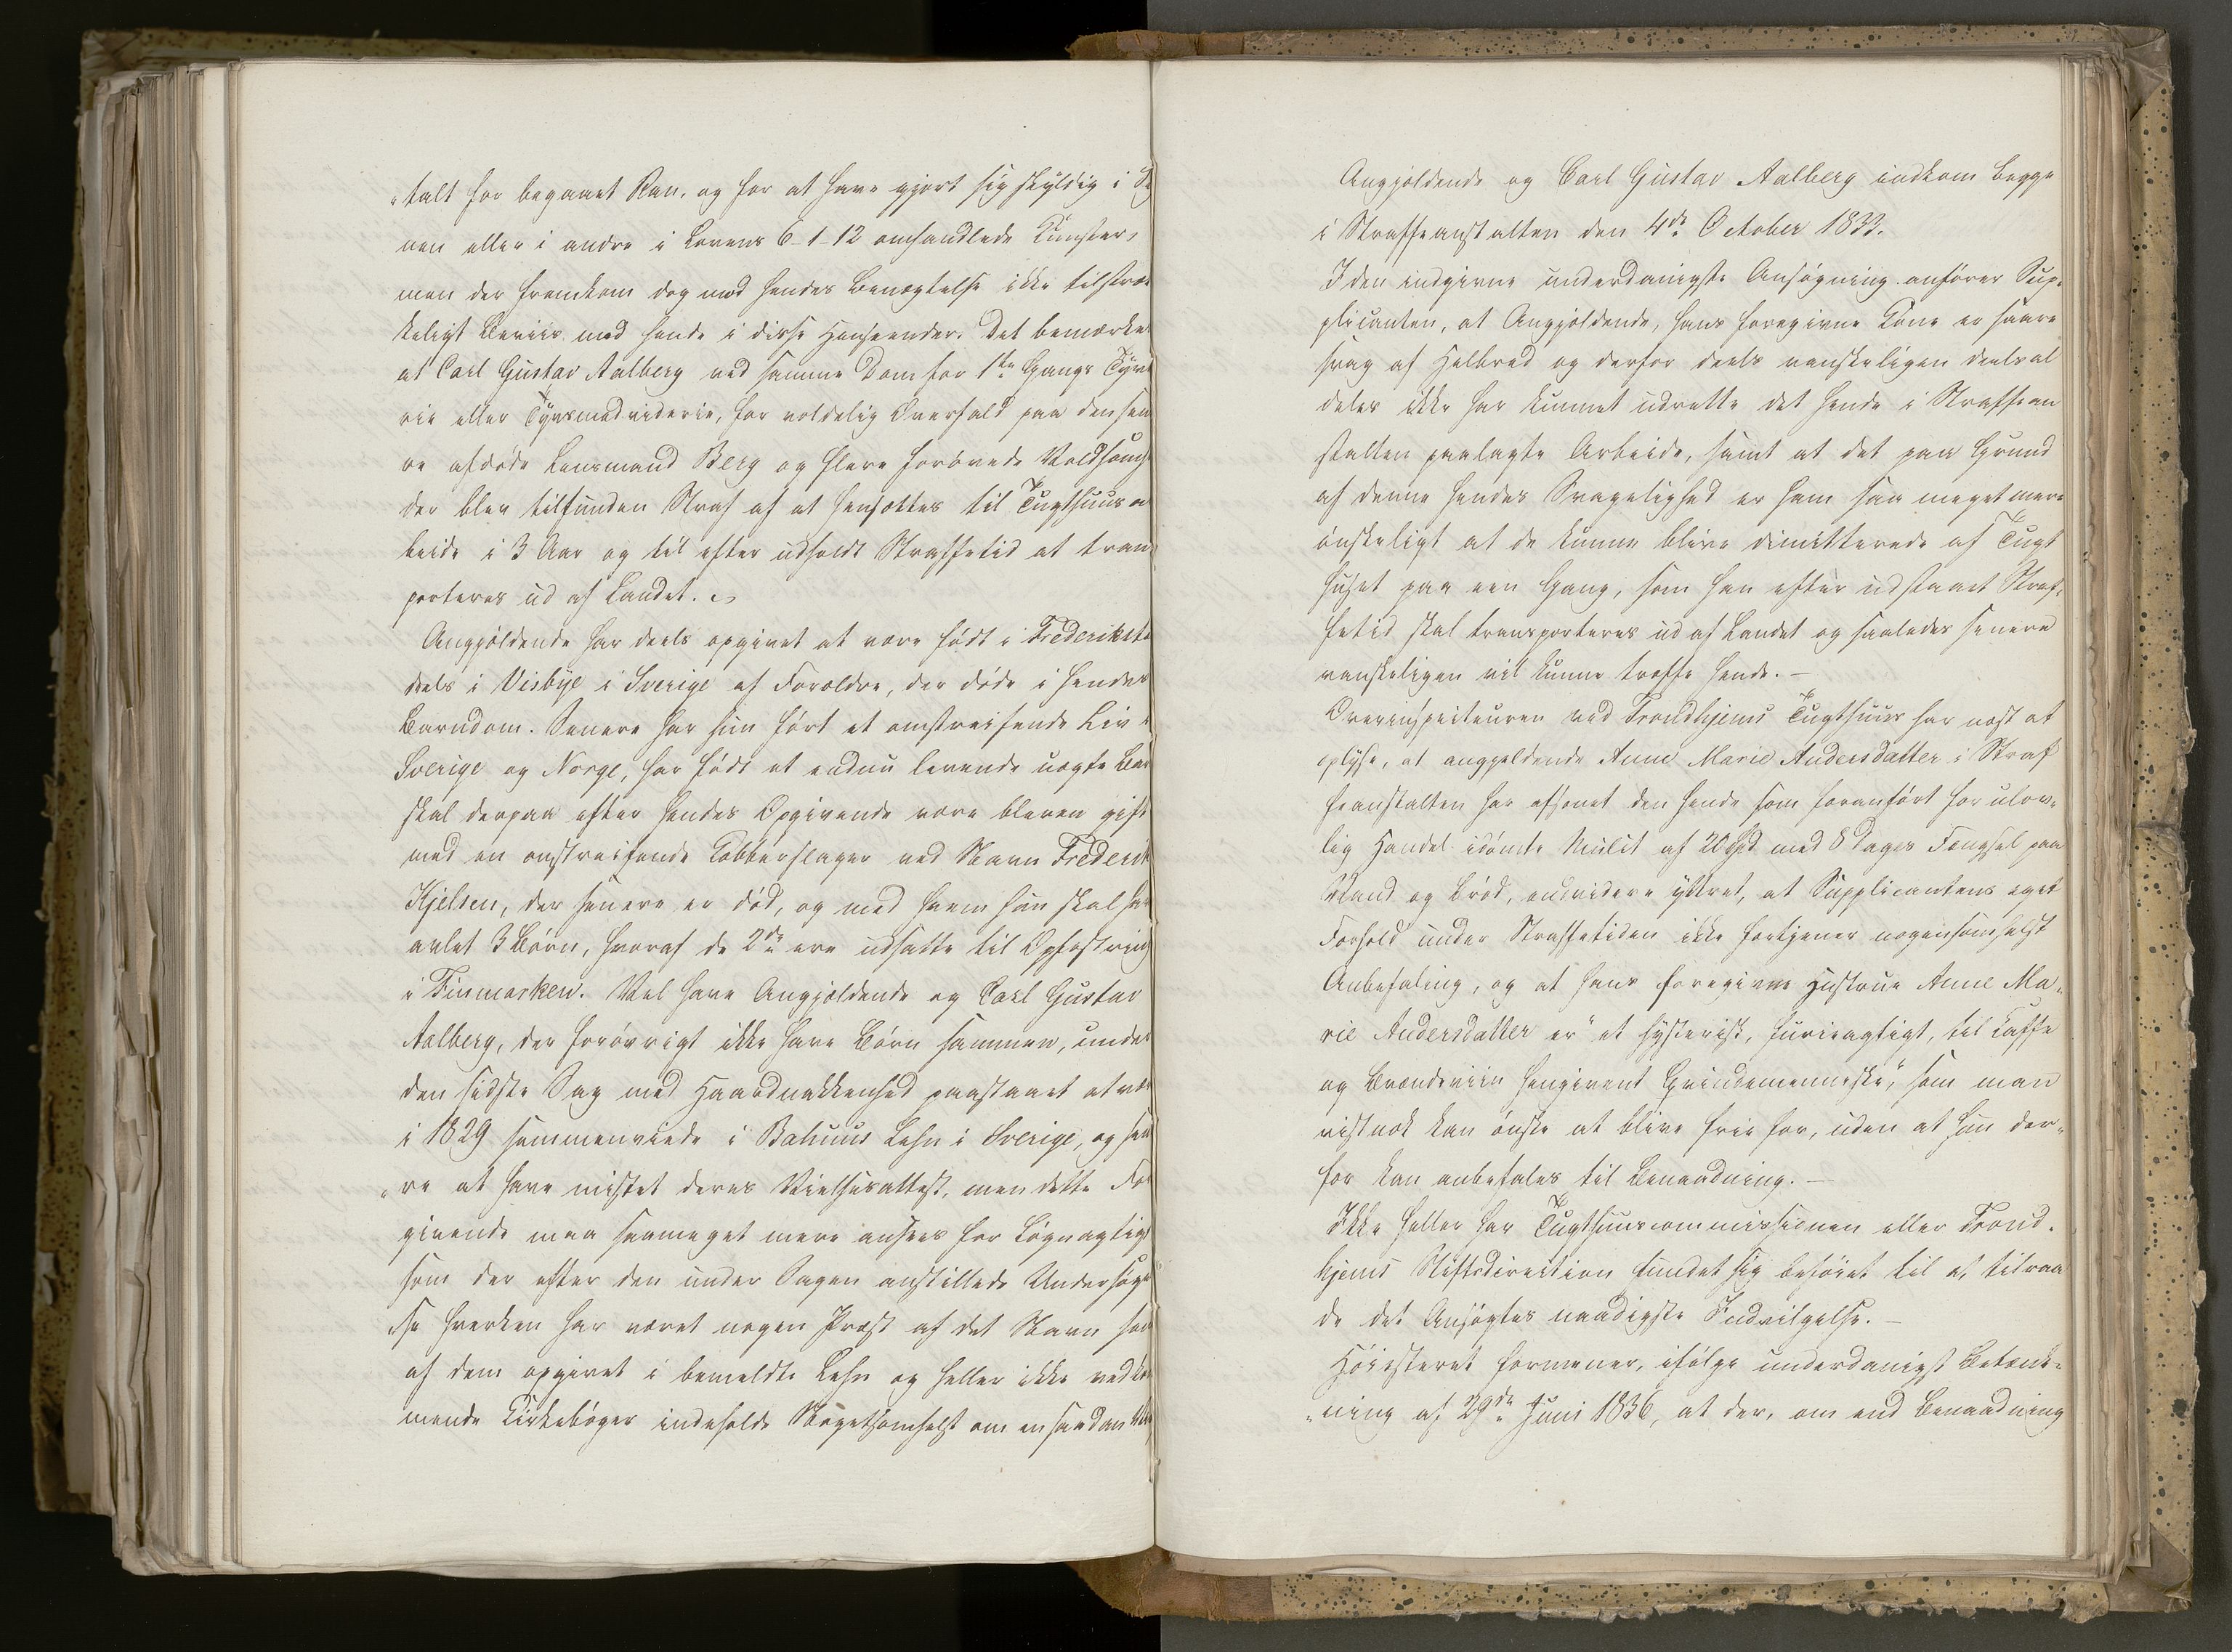 „talt for begaaet Ran, og for at have gjort sig skyldig i
nen eller i andre i Lovens 6-1-12 omhandlede Kunster,
men der fremkom dog mod hendes Benægtelse ikke tilstræk
keligt Beviis mod hende i disse Henseender. Det bemærkes
at Carl Gustav Aalberg ved samme Dom for 1ste Gangs Tyve
rie eller Tyvsmedvideri, for voldelig Overfald paa den sene
re afdøde Lensmand Berg og flere forøvede Voldsomhe
der blev tilfunden Straf af at hensættes til Tugthuusar
beide i 3 Aar og til efter udholdt Straffetid at trans
porteres ud af Landet.
Angjældende har deels opgivet at være født i Frederikst.
deels i Visbye i Sverige af Forældre, der døde i hendes
Barndom. Senere har hun ført et omstreifende Liv i
Sverige og Norge, har født et endnu levende uægte Bar
skal derpaa efter hendes Opgivende være bleven gift
med en omstreifende Kobberslager ved Navn Frederik
Hjelsen, der senere er død, og med hvem hun skal have
avlet 3 Børn, hvoraf de 2de ere udsatte til Opfostring
i Finmarken. Vel have Angjældende og Carl Gustav
Aalberg, der forøvrigt ikke have Børn sammen, under
den sidste Sag med Haardnakkenhed paastaaet at vær
i 1829 sammenviede i Bahuus Lehn i Sverige, og sene
„re at have mistet deres Vielsesattest, men dette Fore
givende maa saameget mere ansees for Løgnagtigt
som der efter den under Sagen anstillede Undersøgel
„se hverken har været nogen Præst af det Navn som
af dem opgivet i bemeldte Lehn og heller ikke vedkom
mende Kirkebøger indeholde Nogetsomhelst om en saadan
Angjældende og Carl Gustav Aalberg indkom begge
i Straffeanstalten den 4de October 1833.
I den indgivne underdanigste Ansøgning anfører Sup„
plicanten, at Angjældende, hans foregivne Kone er saare
svag af Helbred og derfor deels vanskeligen deels al
deles ikke har kunnet udrette det hende i Straffean
stalten paalagte Arbeide, samt at det paa Grund
af denne hendes Svagelighed er ham saa meget mere
ønskeligt at de kunne blive dimitterede af Tugt
huset paa een Gang, som han efter udstaaet Straf„
fetid skal transporteres ud af Landet og saaledes senere
vanskeligen vil kunne træffe hende. –
Overinspecteuren ved Trondhjems Tugthuus har næst at
oplyse, at angjældende Anne Marie Andersdatter i Straf
feanstalten har afsonet den hende som foranført for ulov„
lig Handel idømte Mulct af 20 Spd med 8 Dages Fængsel paa
Vand og Brød, endvidere yttret, at Supplicantens eget
Forhold under Straffetiden ikke fortjener nogensomhelst
Anbefaling, og at hans foregivne Hustrue Anne Ma„
rie Andersdatter er „et hysterisk, furieagtigt, til Kaffe
og Brændeviin hengivent Qvindemenneske," som man
vistnok kan ønske at blive frie for, uden at hun der„
for kan anbefales til Benaadning. –
Ikke heller har Tugthuuscommissionen eller Trond„
hjems Stiftsdirection fundet sig beføiet til at tilraa
de det Ansøgtes naadigste Indvilgelse. –
Høiesteret formener, ifølge underdanigst Betænk„
„ning af 29de Juni 1836, at der, om end Benaadning